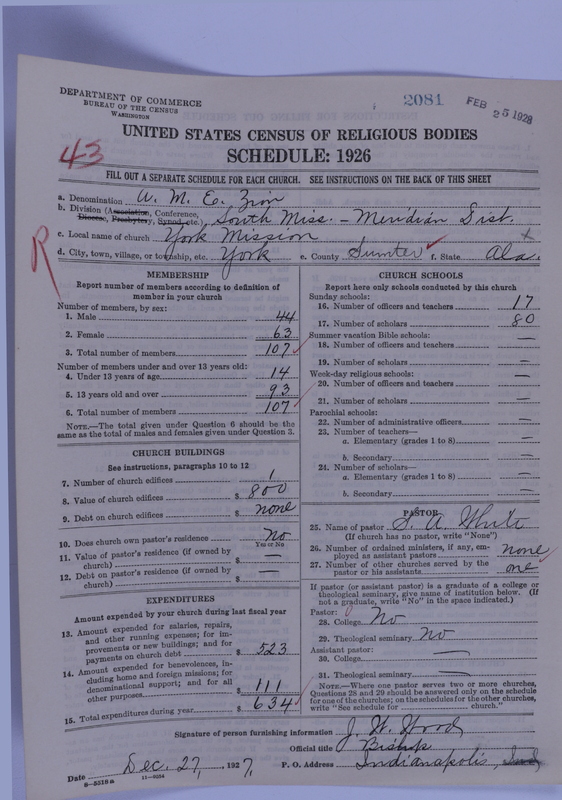 DEPARTMENT OF COMMERCE
BUREAU OF THE CENSUS
WASHINGTON
2081
FEB 25 1928
UNITED STATES CENSUS OF RELIGIOUS BODIES
SCHEDULE: 1926
43
FILL OUT A SEPARATE SCHEDULE FOR EACH CHURCH. SEE INSTRUCTIONS ON THE BACK OF THIS SHEET
a. Denomination A. M. E. Zion
b. Division (Association, Conference, Diocese, Presbytery, Synod, etc.) South Miss. - Meridian Dist.
c. Local name of church York Mission
R
d. City, town, village, or township, etc. York e. County Sumter f. State Ala.
MEMBERSHIP
Report number of members according to definition of
member in your church
Number of members, by sex:
1. Male 44
2. Female 63
3. Total number of members 107
Number of members under and over 13 years old:
4. Under 13 years of age 14
5. 13 years old and over 93
6. Total number of members 107
NOTE.—The total given under Question 6 should be
same as the total of males and females given under Question 3.
CHURCH BUILDINGS
See instructions, paragraphs 10 to 12
7. Number of church edifices 1
8. Value of church edifices $ 800
9. Debt on church edifices $ none
10. Does church own pastor's residence? No
Yes or No
11. Value of pastor's residence (if owned by
church) $ —
12. Debt on pastor's residence (if owned by
church) $ —
EXPENDITURES
Amount expended by your church during last fiscal year
13. Amount expended for salaries, repairs,
and other running expenses; for im-
provements or new buildings; and for
payments on church debt $ 523
14. Amount expended for benevolences, in-
cluding home and foreign missions; for
denominational support; and for all
other purposes $ 111
15. Total expenditures during year $ 634
CHURCH SCHOOLS
Report here only schools conducted by this church
Sunday schools:
16. Number of officers and teachers 17
17. Number of scholars 80
Summer vacation Bible schools:
18. Number of officers and teachers —
19. Number of scholars —
Week-day religious schools:
20. Number of officers and teachers —
21. Number of scholars —
Parochial schools:
22. Number of administrative officers —
23. Number of teachers—
a. Elementary (grades 1 to 8) —
b. Secondary —
24. Number of scholars—
a. Elementary (grades 1 to 8) —
b. Secondary —
PASTOR
25. Name of pastor S. A. White
(If church has no pastor, write "None")
26. Number of ordained ministers, if any, em-
ployed as assistant pastors none
27. Number of other churches served by the
pastor or his assistants one
If pastor (or assistant pastor) is a graduate of a college or
theological seminary, give name of institution below. (If
not a graduate, write "No" in the space indicated.)
Pastor:
28. College No
29. Theological seminary No
Assistant pastor:
30. College —
31. Theological seminary —
NOTE.—Where one pastor serves two or more churches,
Questions 28 and 29 should be answered only on the schedule
for one of the churches; on the schedules for the other churches,
write "See schedule for church."
Signature of person furnishing information J. W. Wood
Official title Bishop
Date Dec. 27, 1927, P. O. Address Indianapolis, Ind
8—5518a 11—9354